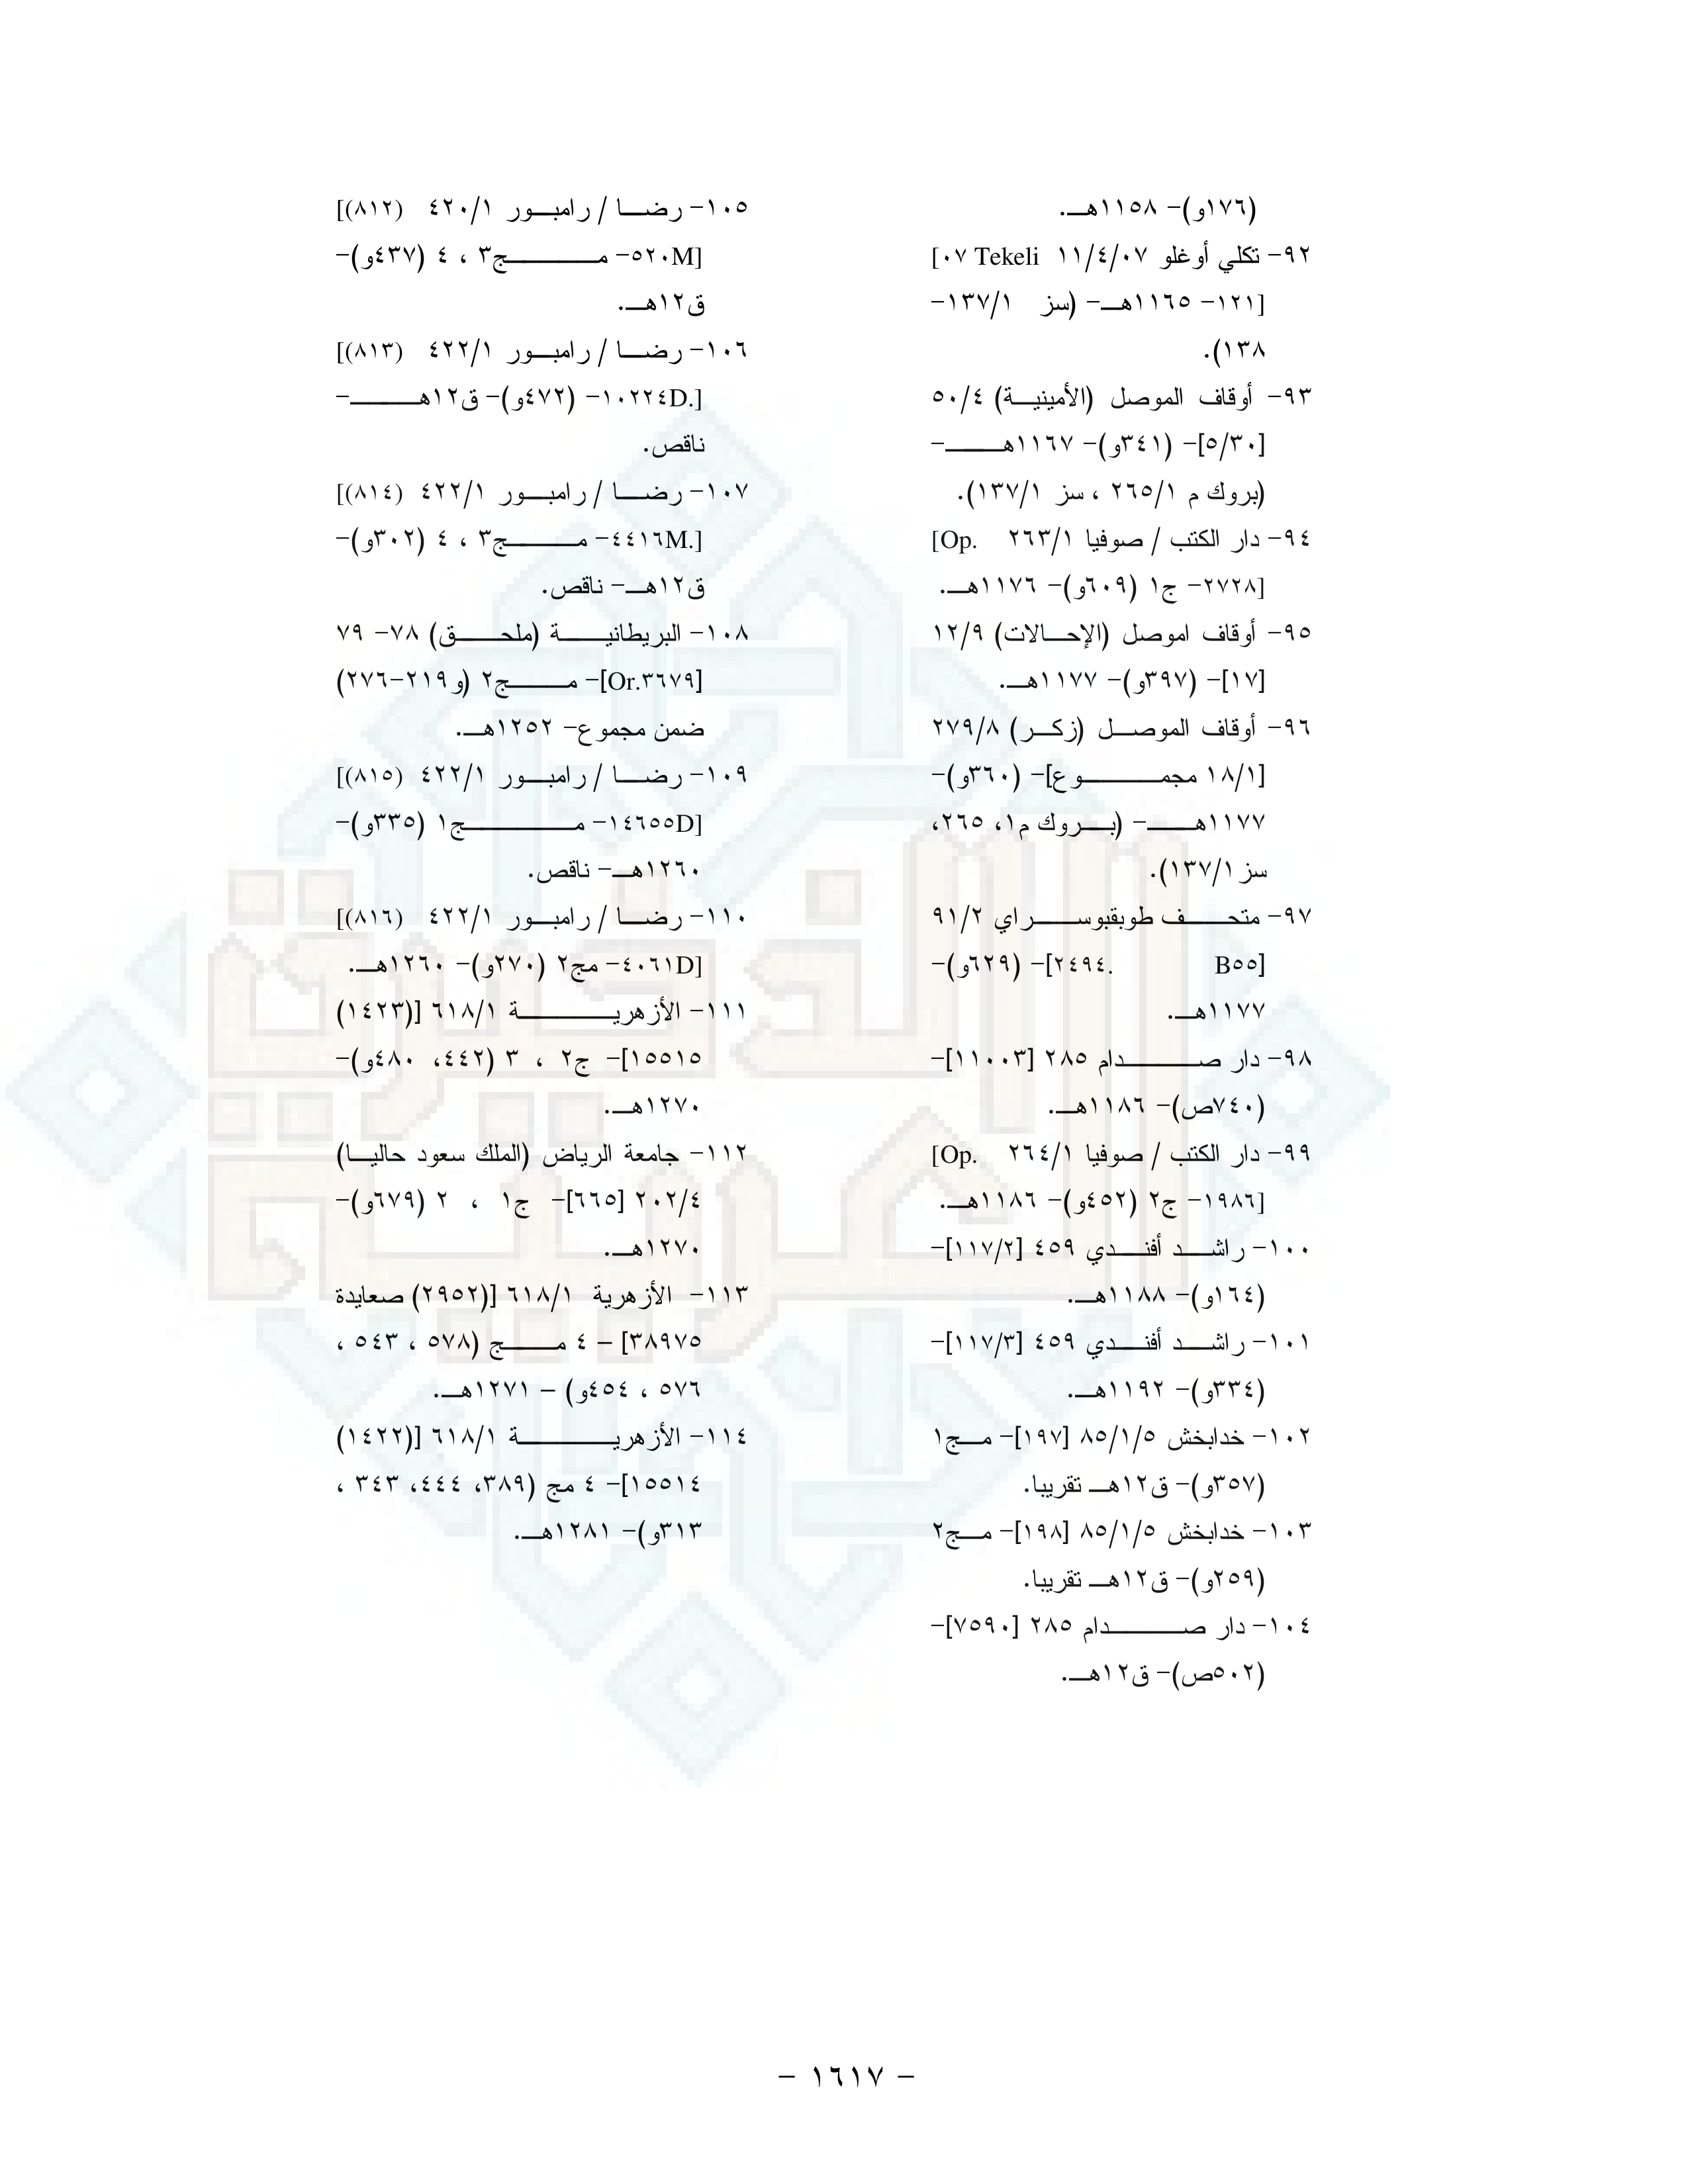 (١٧٦و)- ١١٥٨هـ.
٩٢- تكلي أوغلو ١١/٤/٠٧ [٠٧ Tekeli
١٢١]- ١١٦٥هـ- (سز ١٣٧/١-
١٣٨).
٩٣- أوقاف الموصل (الأمينية) ٥٠/٤
[٥/٣٠]- (٣٤١و)- ١١٦٧هـ-
(بروك م ٢٦٥/١ ، سز ١٣٧/١).
٩٤- دار الكتب / صوفيا ٢٦٣/١ [Op.
٢٧٢٨]- ج١ (٦٠٩و)- ١١٧٦هـ.
٩٥- أوقاف اموصل (الإحالات) ١٢/٩
[١٧]- (٣٩٧و)- ١١٧٧هـ.
٩٦- أوقاف الموصل (زكر) ٢٧٩/٨
[١٨/١ مجموع]- (٣٦٠و)-
١١٧٧هـ- (بروك م١، ٢٦٥،
سز ١٣٧/١).
٩٧- متحف طوبقبوسراي ٩١/٢
[B٥٥ .٢٤٩٤]- (٦٢٩و)-
١١٧٧هـ.
٩٨- دار صدام ٢٨٥ [١١٠٠٣]-
(٧٤٠ص)- ١١٨٦هـ.
٩٩- دار الكتب / صوفيا ٢٦٤/١ [Op.
١٩٨٦]- ج٢ (٤٥٢و)- ١١٨٦هـ.
١٠٠- راشد أفندي ٤٥٩ [١١٧/٢]-
(١٦٤و)- ١١٨٨هـ.
١٠١- راشد أفندي ٤٥٩ [١١٧/٣]-
(٣٣٤و)- ١١٩٢هـ.
١٠٢- خدابخش ٨٥/١/٥ [١٩٧]- مج١
(٣٥٧و)- ق١٢هـ تقريبا.
١٠٣- خدابخش ٨٥/١/٥ [١٩٨]- مج٢
(٢٥٩و)- ق١٢هـ تقريبا.
١٠٤- دار صدام ٢٨٥ [٧٥٩٠]-
(٥٠٢ص)- ق١٢هـ.
١٠٥- رضا / رامبور ٤٢٠/١ [(٨١٢)
٥٢٠M]- مج٣ ، ٤ (٤٣٧و)-
ق١٢هـ.
١٠٦- رضا / رامبور ٤٢٢/١ [(٨١٣)
١٠٢٢٤D.]- (٤٧٢و)- ق١٢هـ-
ناقص.
١٠٧- رضا / رامبور ٤٢٢/١ [(٨١٤)
٤٤١٦M.]- مج٣ ، ٤ (٣٠٢و)-
ق١٢هـ- ناقص.
١٠٨- البريطانية (ملحق) ٧٨- ٧٩
[Or.٣٦٧٩]- مج٢ (و٢١٩-٢٧٦)
ضمن مجموع- ١٢٥٢هـ.
١٠٩- رضا / رامبور ٤٢٢/١ [(٨١٥)
١٤٦٥٥D]- مج١ (٣٣٥و)-
١٢٦٠هـ- ناقص.
١١٠- رضا / رامبور ٤٢٢/١ [(٨١٦)
٤٠٦١D]- مج٢ (٢٧٠و)- ١٢٦٠هـ.
١١١- الأزهرية ٦١٨/١ [(١٤٢٣)
١٥٥١٥]- ج٢ ، ٣ (٤٤٢، ٤٨٠و)-
١٢٧٠هـ.
١١٢- جامعة الرياض (الملك سعود حاليا)
٢٠٢/٤ [٦٦٥]- ج١ ، ٢ (٦٧٩و)-
١٢٧٠هـ.
١١٣- الأزهرية ٦١٨/١ [(٢٩٥٢) صعايدة
٣٨٩٧٥] – ٤ مج (٥٧٨ ، ٥٤٣ ،
٥٧٦ ، ٤٥٤و) – ١٢٧١هـ.
١١٤- الأزهرية ٦١٨/١ [(١٤٢٢)
١٥٥١٤]- ٤ مج (٣٨٩، ٤٤٤، ٣٤٣ ،
٣١٣و)- ١٢٨١هـ.
- ١٦١٧ -
الذخيرة
العربية